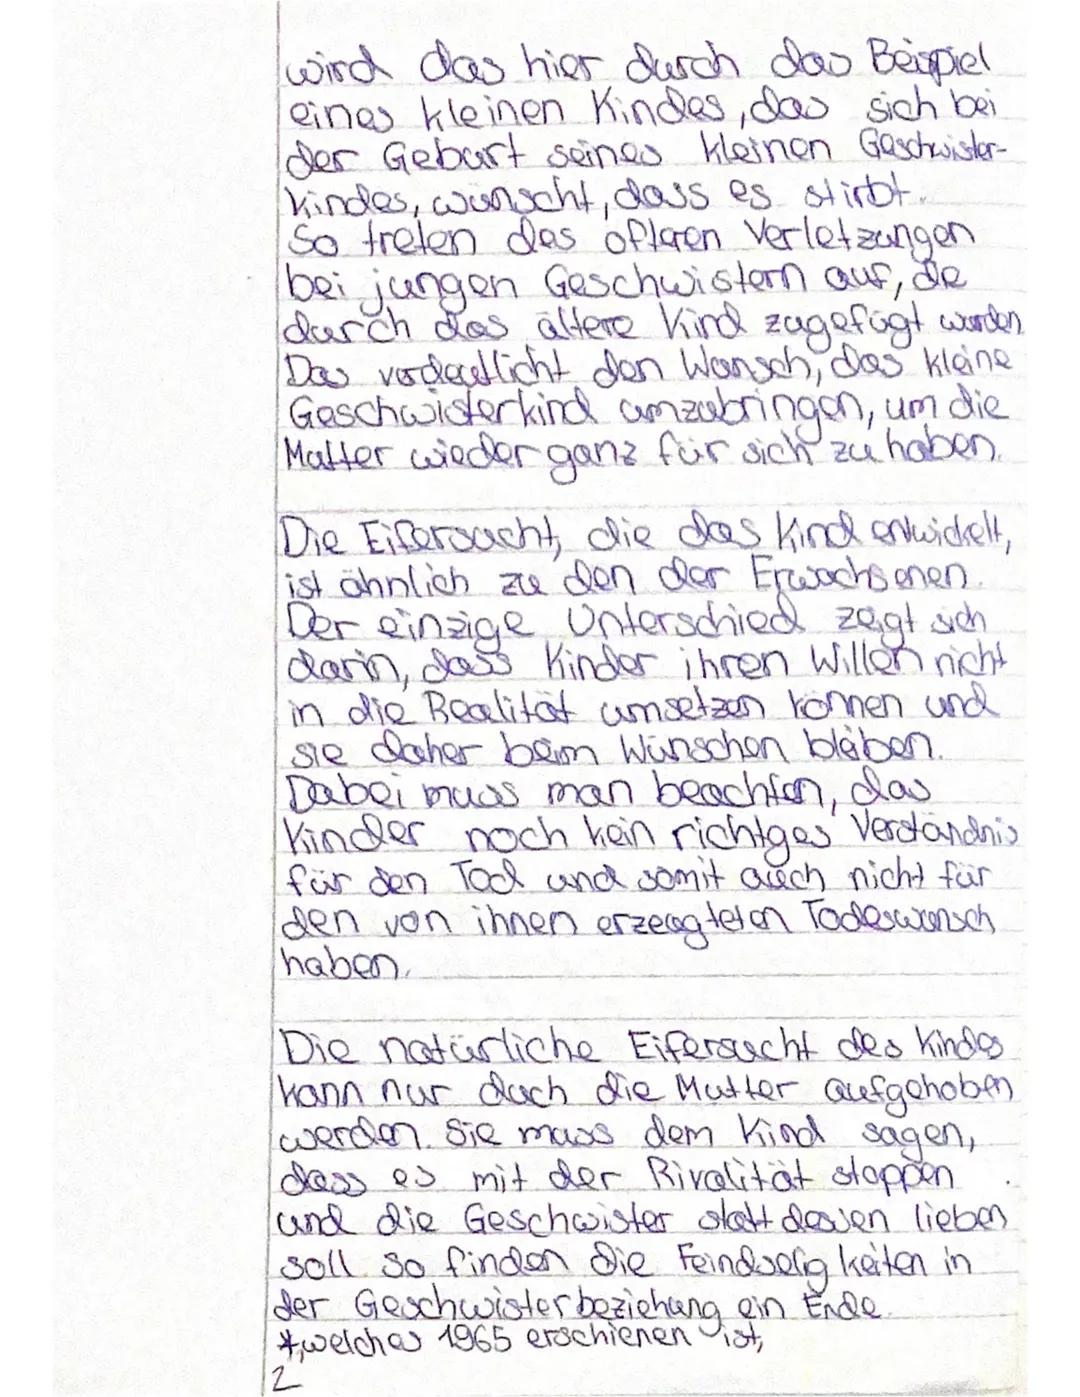 wird das hier durch das Beispiel
eines kleinen Kindes, das sich bei
der Geburt seines kleinen Geschwister-
kindes, wünscht, dass es stirbt.
So treten des öfteren Verletzungen
bei jungen Geschwistern auf, die
durch das ältere Kind zugefügt wurden
Das verdeutlicht den Wunsch, das kleine
Geschwisterkind umzubringen, um die
Mutter wieder ganz für sich zu haben.
Die Eifersucht, die das Kind entwickelt,
ist ähnlich zu den der Erwachsenen.
Der einzige Unterschied zeigt sich
darin, dass Kinder ihren Willen nicht
in die Realität umsetzen können und
sie daher beim Wünschen bleiben.
Dabei muss man beachten, das
Kinder noch kein richtges Verständnis
für den Tod und somit auch nicht für
den von ihnen erzeugteten Todeswunsch
haben.
Die natürliche Eifersucht des Kindes
kann nur duch die Mutter aufgehoben
werden. Sie muss dem Kind sagen,
dass es mit der Rivalität stoppen
und die Geschwister statt dessen lieben
soll. So finden die Feindselig keiten in
der Geschwisterbeziehung ein Ende.
*,welches 1965 erschienen ist,
2